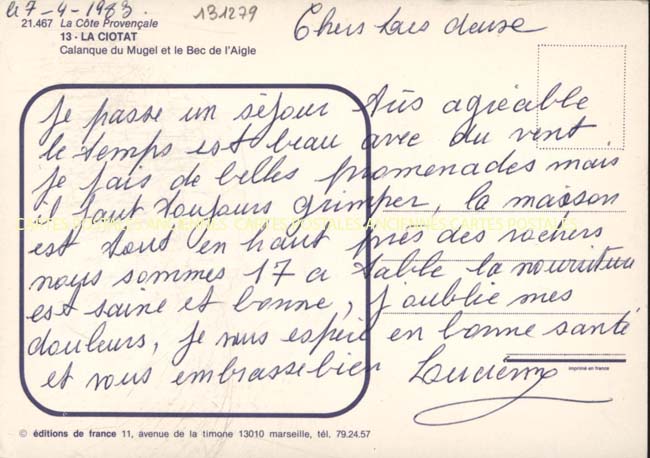 le 7-4-1983.
131279
21.467 La Côte Provençale
13 - LA CIOTAT
Calanque du Mugel et le Bec de l'Aigle
Chers tous deux
Je passe un séjour très agréable
le temps est beau avec du vent
je fais de belles promenades mais
il faut toujours grimper, la maison
CARTES POSTALES ANCIENNES CARTES POSTALES ANCIENNES CARTES POSTALES
est tout en haut près des rochers
nous sommes 17 a table la nourriture
est saine et bonne, j'oublie mes
douleurs, je vous espère en bonne santé
et vous embrasse bien
imprimé en france
© éditions de france 11, avenue de la timone 13010 marseille, tél. 79.24.57